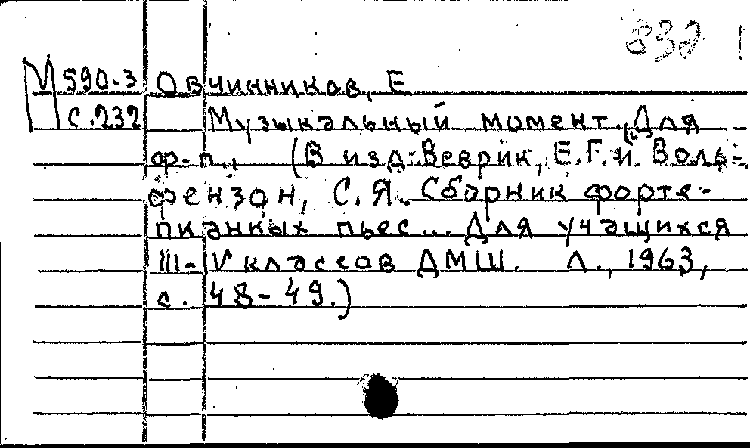 832
М 590-3 Овчинников, Е
с.232 Музыкальный момент. Для
ф-п., (В изд: Веврик, Е.Г. и Воль-
фензон, С.Я. Сборник форте-
пианных пьес... Для учащихся
III-V классов ДМШ. Л., 1963,
с. 48-49.)